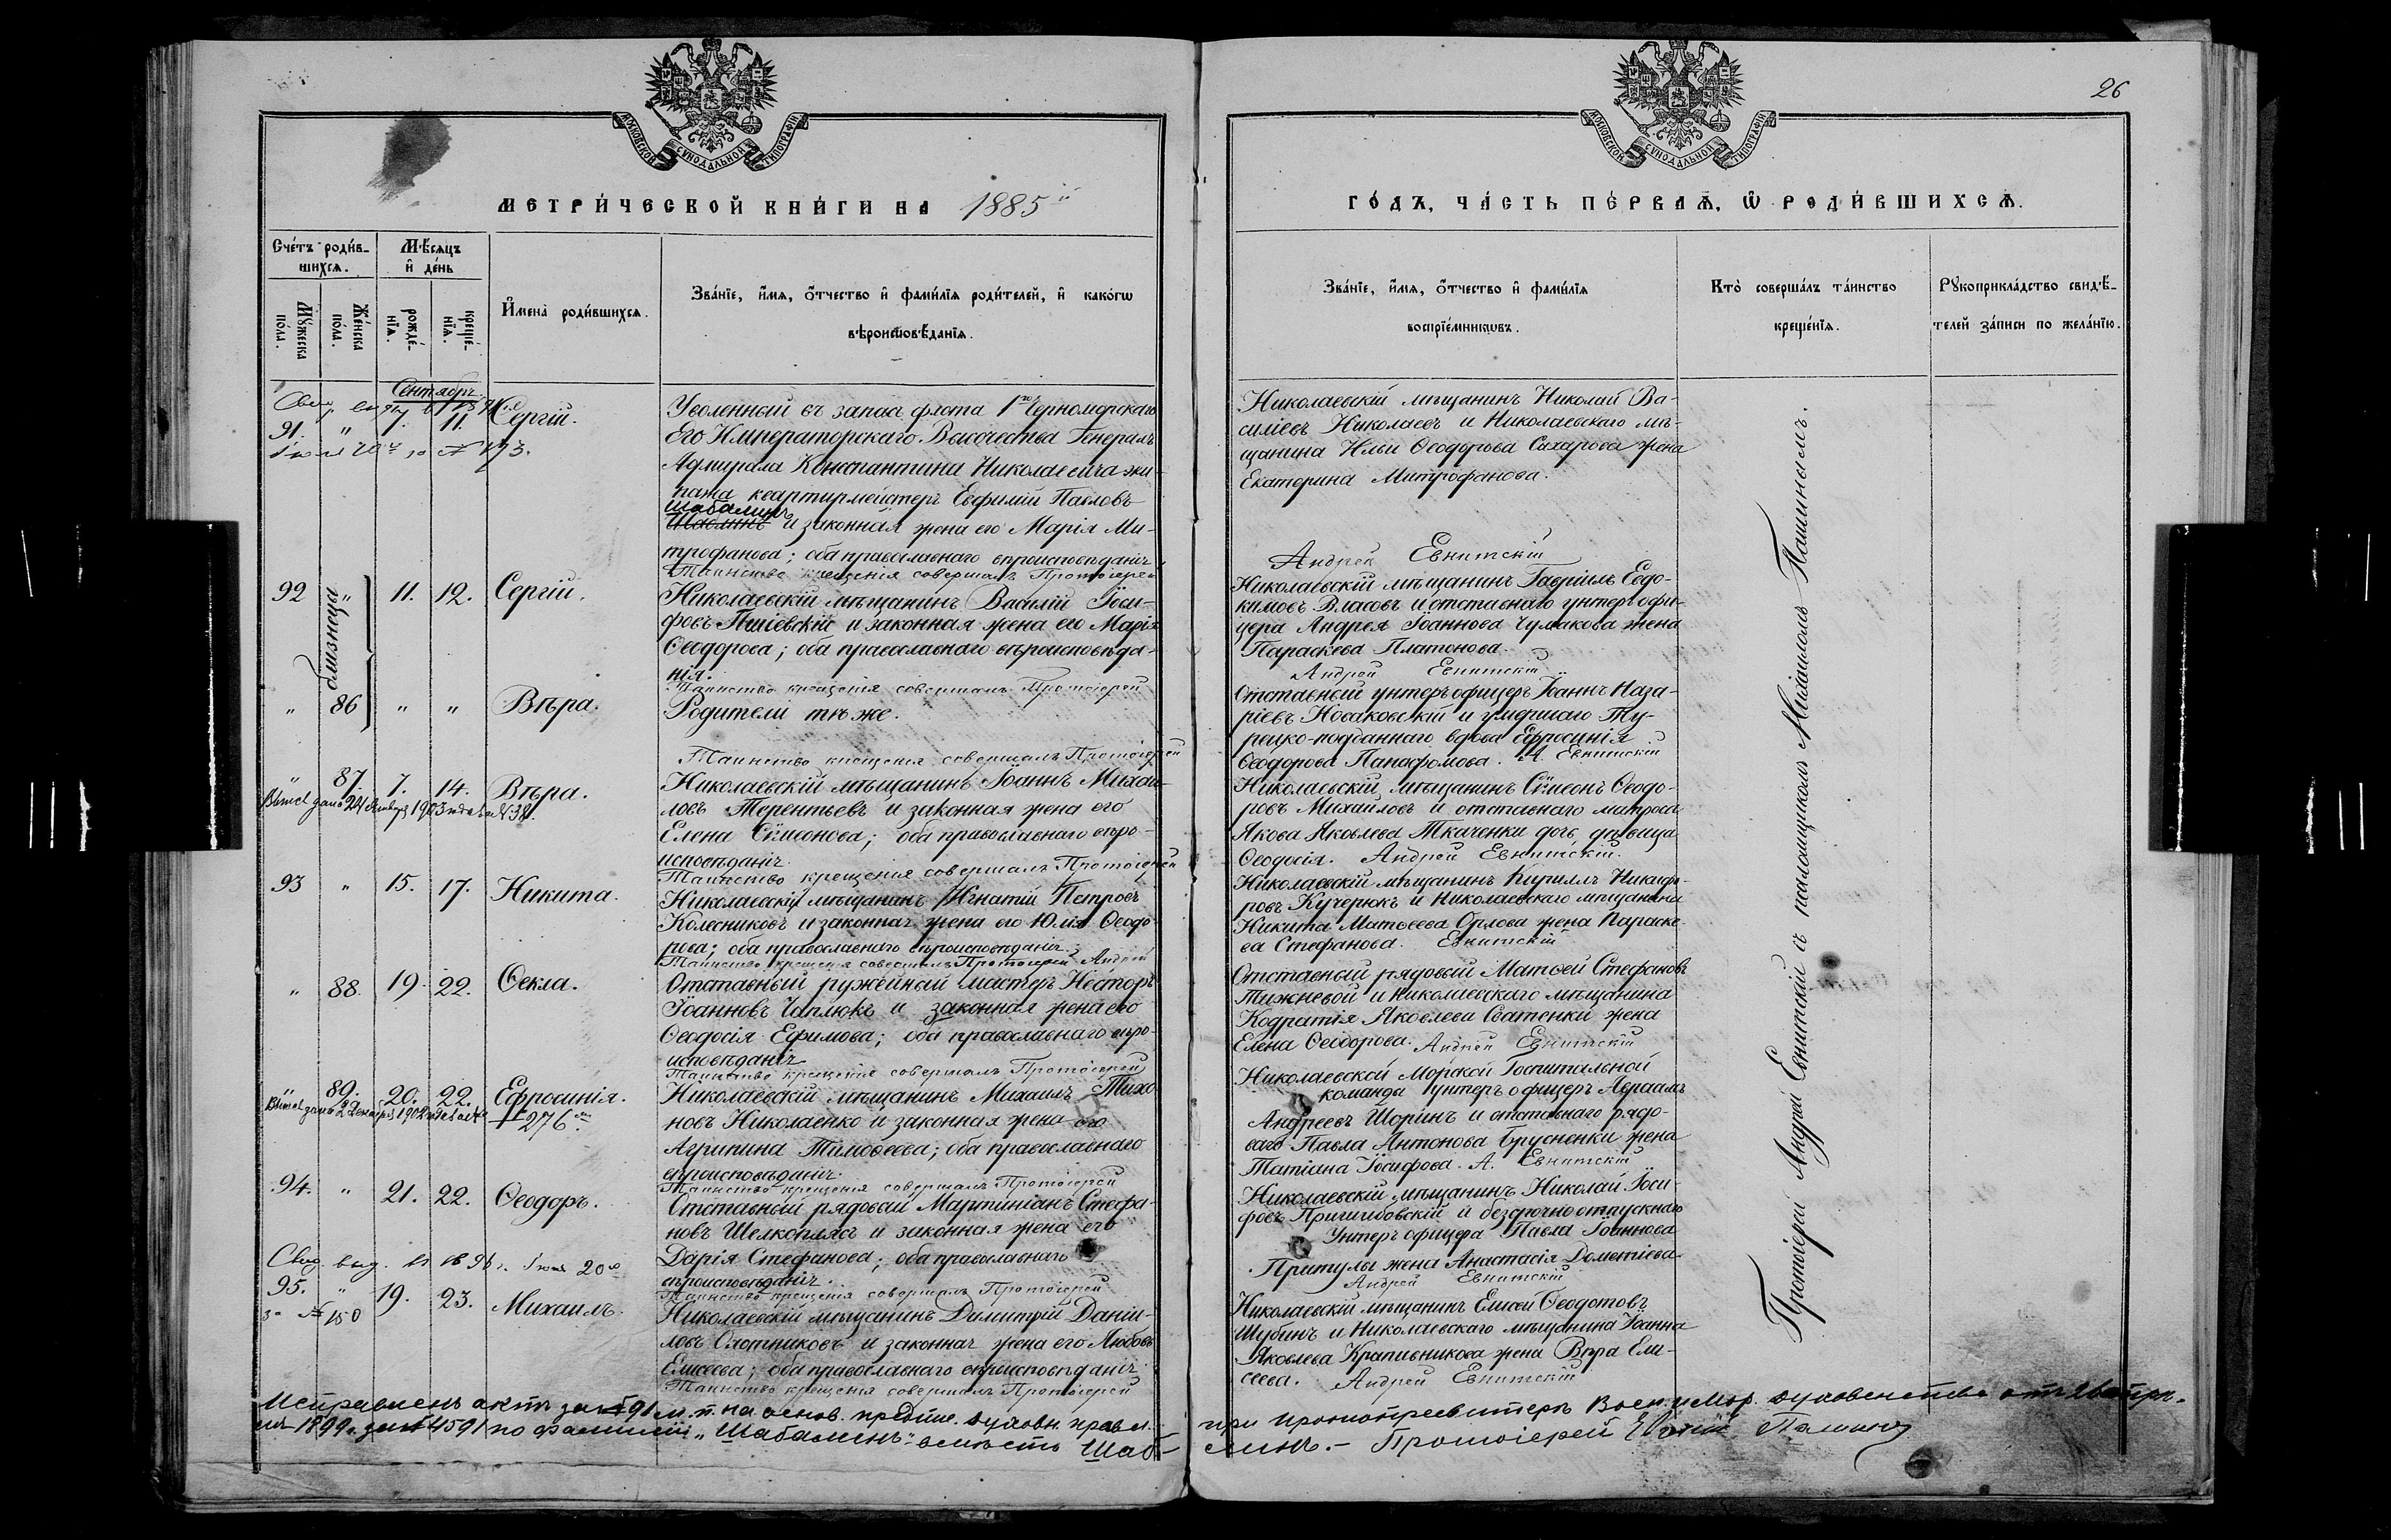 26
МОСКОВСКОЙ СѴНОДАЛЬНОЙ ТИПОГРАФІИ
МОСКОВСКОЙ СѴНОДАЛЬНОЙ ТИПОГРАФІИ
МЕТРИ́ЧЕСКОЙ КНИ́ГИ НА 1885й
ГО́ДЪ, ЧА́СТЬ ПЕ́РВАѦ, Ѡ РОДИ́ВШИХСѦ.
Сче́тъ роди́в-
шихсѧ.
Мꙋ́жеска
по́ла.
Же́нска
по́ла.
Мѣ́сѧцъ
и҆ де́нь
рожде́-
нїѧ.
креще́-
нїѧ.
И҆мена̀ роди́вшихсѧ.
Зва́нїе, и҆́мѧ, ѻ҆́тчество и҆ фами́лїѧ роди́телей, и҆ како́гѡ
вѣроисповѣ́данїѧ.
Зва́нїе, и҆́мѧ, ѻ҆́тчество и҆ фами́лїѧ
воспрїе́мникѡвъ.
Кто̀ соверша́лъ та́инство
креще́нїѧ.
Рꙋкоприкла́дство свидѣ́-
телей за́писи по жела́нїю.
Сентябрь.
91. " 7. 11. Сергій.
Уволенный въ запас флота 1го Черноморскаго
Его Императорскаго Высочества Генералъ
Адмирала Константина Николаевича эки-
пажа квартирмейстеръ Евфимій Павловъ
Шабалинъ
Шаблинъ и законная жена его Марія Ми-
трофанова; оба православнаго вѣроисповѣданія.
Таинство крещенія совершалъ Протоіерей
Николаевскій мѣщанинъ Николай Ва-
силіевъ Николаевъ и Николаевскаго мѣ-
щанина Ильи Ѳеодорова Сахарова жена
Екатерина Митрофанова.
Андрей Евнитскій
92 " близнеца 11. 12. Сергій.
Николаевскій мѣщанинъ Василій Іоси-
фовъ и законная жена его Марія
Ѳеодорова; оба православнаго вѣроисповѣда-
нія.
Таинство крещенія совершалъ Протоіерей
Николаевскій мѣщанинъ Гавріилъ Евдо-
кимовъ Власовъ и отставнаго унтеръ офи-
цера Андрея Іоаннова Чумакова жена
Параскева Платонова.
Андрей Евнитскій
" 86 " " Вѣра.
Родители тѣ же.
Таинство крещенія совершалъ Протоіерей
Отставный унтеръ офицеръ Іоаннъ Наза-
ріевъ Новаковскій и умершаго Ту-
рецко-подданнаго вдова Ефросинія
Ѳеодорова Панафомова. А. Евнитскій
" 87. 7. 14. Вѣра.
Николаевскій мѣщанинъ Іоаннъ Михаи-
ловъ Терентьевъ и законная жена его
Елена Сѷмеонова; оба православнаго вѣро-
исповѣданія.
Таинство крещенія совершалъ Протоіерей
Николаевскій мѣщанинъ Сѷмеонъ Ѳеодо-
ровъ Михайловъ и отставнаго матроса
Якова Яковлева Ткаченки дочь дѣвица
Ѳеодосія. Андрей Евнитскій.
93 " 15. 17. Никита.
Николаевскій мѣщанинъ Игнатій Петровъ
Колесниковъ и законная жена его Юлія Ѳеодо-
рова; оба православнаго вѣроисповѣданія.
Таинство крещенія совершалъ Протоіерей Андрей
Николаевскій мѣщанинъ Кириллъ Никифо-
ровъ Кучерюкъ и Николаевскаго мѣщанина
Никита Матѳеева Орлова жена Параске-
ва Стефанова. Евнитскій
" 88. 19. 22. Ѳекла.
Отставный ружейный мастеръ Несторъ
Іоанновъ Чаплюкъ и законная жена его
Ѳеодосія Ефимова; оба православнаго вѣро-
исповѣданія
Таинство крещенія совершалъ Протоіерей
Отставный рядовый Матѳей Стефановъ
Тижневой и Николаевскаго мѣщанина
Кодратія Яковлева жена
Елена Ѳеодорова. Андрей Евнитскій
" 89. 20. 22. Ефросинія.
276
Николаевскій мѣщанинъ Михаилъ Тихо-
новъ Николаенко и законная жена его
Агрипина Тимоѳеева; оба православнаго
вѣроисповѣданія.
Таинство крещенія совершалъ Протоіерей
Николаевской Морской Госпитальной
команды унтеръ офицеръ Авраамъ
Андреевъ Шоринъ и отставнаго рядо-
ваго Павла Антонова Брусненки жена
Татіана Іосифова. А. Евнитскій
94. " 21. 22. Ѳеодоръ.
Отставный рядовый Мартиніанъ Стефа-
новъ Шелкоплясъ и законная жена его
Дарія Стефанова; оба православнаго
вѣроисповѣданія.
Таинство крещенія совершалъ Протоіерей
Николаевскій мѣщанинъ Николай Іоси-
фовъ Пригшибовскій и безсрочно отпускнаго
Унтеръ офицера Павла Іоаннова
Притулы жена Анастасія Дометіева
Андрей Евнитскій
95. " 19. 23. Михаилъ.
Николаевскій мѣщанинъ Димитрій Даніи-
ловъ Охотниковъ и законная жена его Любовь
Елисеева; оба православнаго вѣроисповѣданія
Таинство крещенія совершалъ Протоіерей
Николаевскій мѣщанинъ Елисей Ѳеодотовъ
Шубинъ и Николаевскаго мѣщанина Іоанна
Яковлева Крапивникова жена Вѣра Ели-
сеева. Андрей Евнитскій
Протоіерей Андрей Евнитскій съ псаломщикомъ Михаиломъ Пашинымъ.
Исправленъ актъ за № 91 м. п. на основ. предпис. духовн. правл. при протопресвитерѣ Воен. и Мор. духовенства отъ
1899 г. за № 4591 по фамиліи „Шабалинъ" вмѣсто Шаб-линъ. – Протоіерей